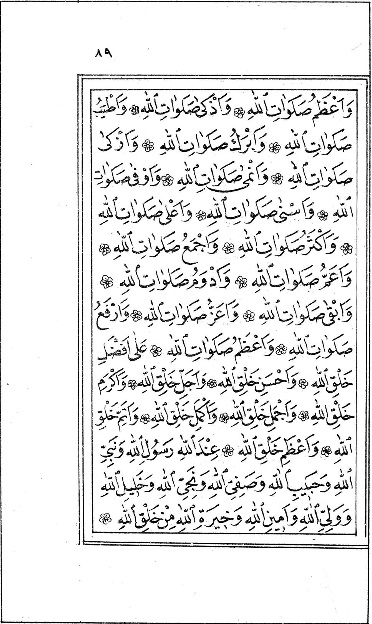 ٨٩
وَاَعْظَمُ صَلَوَاتِ اللهِ ۞ وَاَذْكٰى صَلَوَاتِ اللهِ ۞ وَاَطْيَبُ
صَلَوَاتِ اللهِ ۞ وَاَبْرَكُ صَلَوَاتِ اللهِ ۞ وَاَزْكٰى
صَلَوَاتِ اللهِ ۞ وَاَنْمٰى صَلَوَاتِ اللهِ ۞ وَاَوْفٰى صَلَوَاتِ
اللهِ ۞ وَاَسْنٰى صَلَوَاتِ اللهِ ۞ وَاَعْلٰى صَلَوَاتِ اللهِ
۞ وَاَكْثَرُ صَلَوَاتِ اللهِ ۞ وَاَجْمَعُ صَلَوَاتِ اللهِ ۞
وَاَعَمُّ صَلَوَاتِ اللهِ ۞ وَاَدْوَمُ صَلَوَاتِ اللهِ ۞
وَاَبْقٰى صَلَوَاتِ اللهِ ۞ وَاَعَزُّ صَلَوَاتِ اللهِ ۞ وَاَرْفَعُ
صَلَوَاتِ اللهِ ۞ وَاَعْظَمُ صَلَوَاتِ اللهِ ۞ عَلٰى اَفْضَلِ
خَلْقِ اللهِ ۞ وَاَحْسَنِ خَلْقِ اللهِ ۞ وَاَجَلِّ خَلْقِ اللهِ ۞ وَاَكْرَمِ
خَلْقِ اللهِ ۞ وَاَجْمَلِ خَلْقِ اللهِ ۞ وَاَكْمَلِ خَلْقِ اللهِ ۞ وَاَتَمِّ خَلْقِ
اللهِ ۞ وَاَعْظَمِ خَلْقِ اللهِ ۞ عِنْدَ اللهِ رَسُولِ اللهِ وَنَبِيِّ
اللهِ وَحَبِيبِ اللهِ وَصَفِيِّ اللهِ وَنَجِيِّ اللهِ وَخَلِيلِ اللهِ
وَوَلِيِّ اللهِ وَاَمِينِ اللهِ وَخِيَرَةِ اللهِ مِنْ خَلْقِ اللهِ ۞